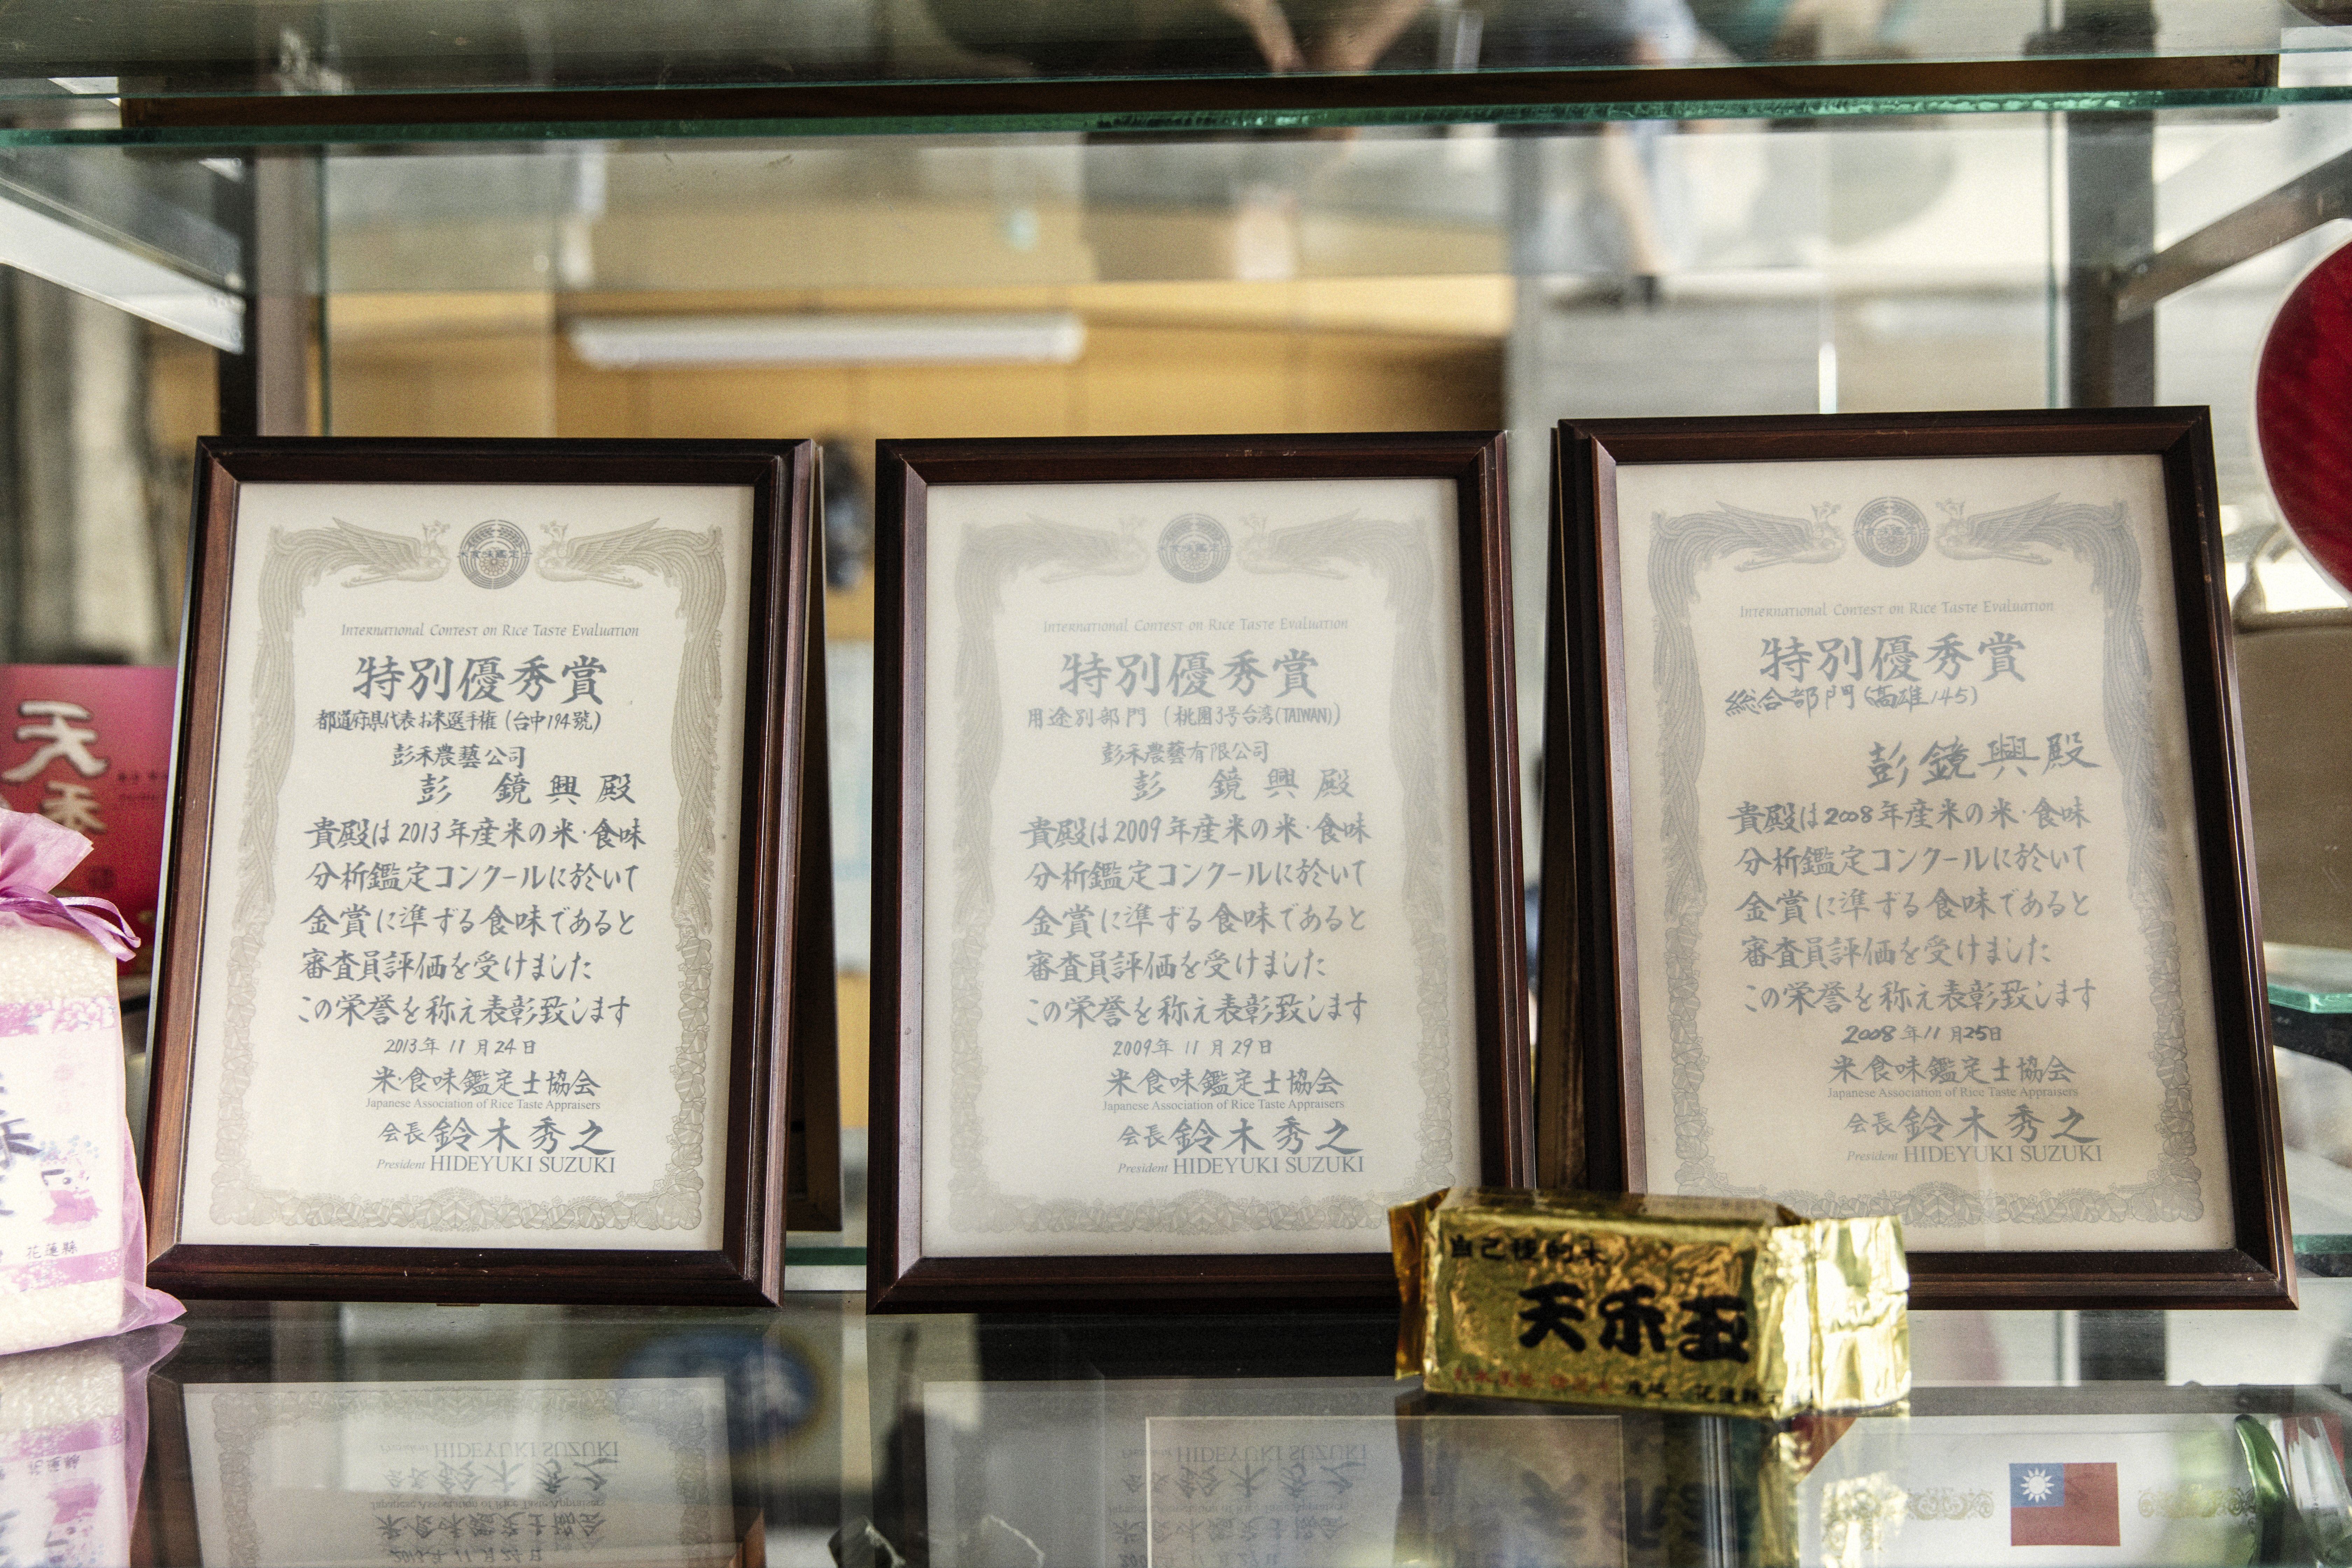 International Contest on Rice Taste Evaluation
特別優秀賞
都道府県代表お米選手権 (台中194號)
彭禾農藝公司
彭 鏡興 殿
貴殿は2013年産米の米・食味
分析鑑定コンクールに於いて
金賞に準ずる食味であると
審査員評価を受けました
この栄誉を称え表彰致します
2013年 11月24日
米・食味鑑定士協会
Japanese Association of Rice Taste Appraisers
会長 鈴木秀之
President HIDEYUKI SUZUKI
International Contest on Rice Taste Evaluation
特別優秀賞
用途別部門 (桃園3号台湾(TAIWAN))
彭禾農藝有限公司
彭 鏡興 殿
貴殿は2009年産米の米・食味
分析鑑定コンクールに於いて
金賞に準ずる食味であると
審査員評価を受けました
この栄誉を称え表彰致します
2009年 11月29日
米・食味鑑定士協会
Japanese Association of Rice Taste Appraisers
会長 鈴木秀之
President HIDEYUKI SUZUKI
International Contest on Rice Taste Evaluation
特別優秀賞
総合部門(高雄145)
彭鏡興殿
貴殿は2008年産米の米・食味
分析鑑定コンクールに於いて
金賞に準ずる食味であると
審査員評価を受けました
この栄誉を称え表彰致します
2008年11月25日
米・食味鑑定士協会
Japanese Association of Rice Taste Appraisers
会長 鈴木秀之
President HIDEYUKI SUZUKI
天禾
花蓮縣
自己種的米
天禾玉